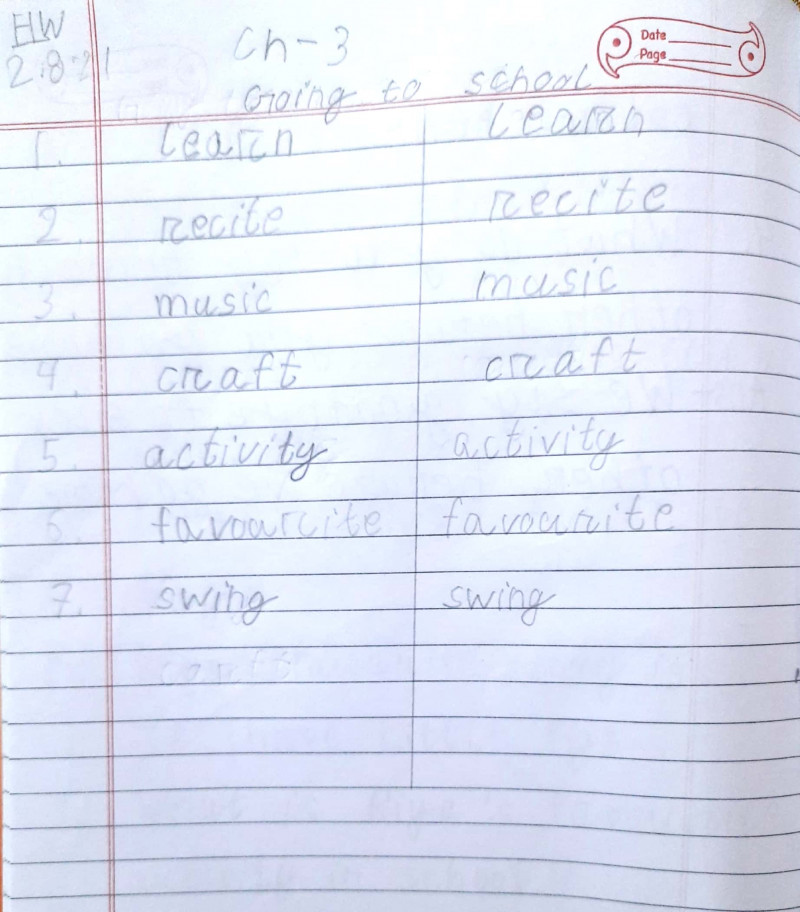 HW
2.8.21
Ch-3
Date
Page
Going to school
1. learn learn
2. recite recite
3. music music
4. craft craft
5. activity activity
6. favourite favourite
7. swing swing